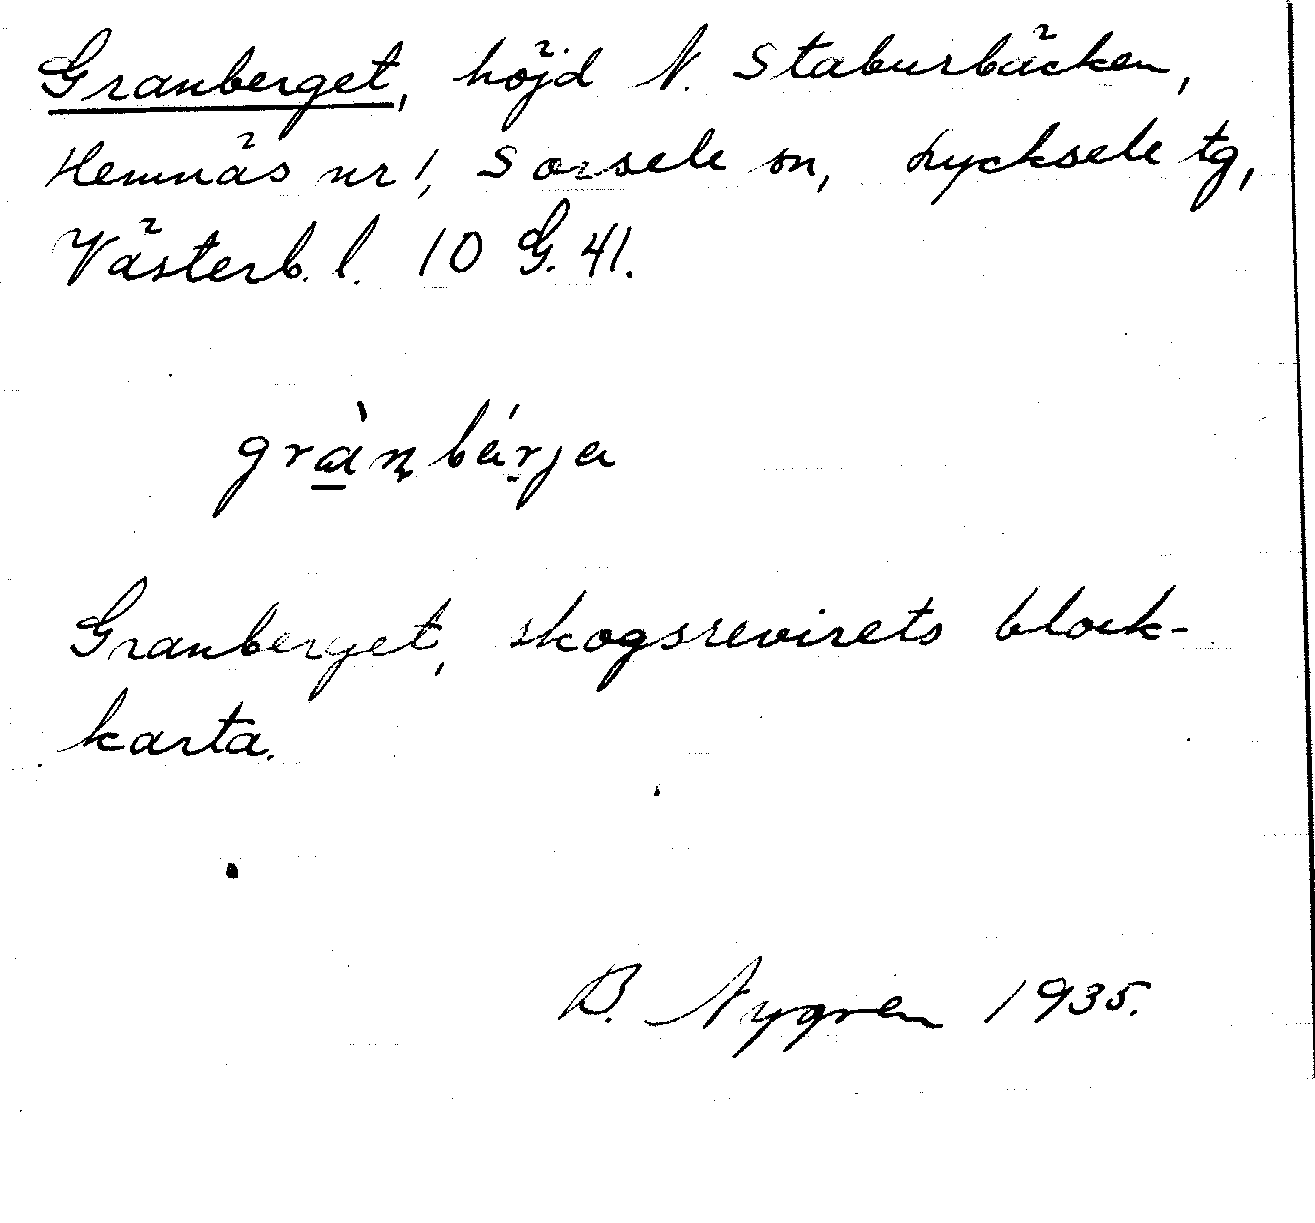 Granberget, höjd N. Staburbäcken,
Hemnäs nr 1, Sorsele sn, Lycksele tg,
Västerb. l. 10 G. 41.
gràn bárja
Granberget, skogsrevirets block-
karta.
B. Nygren 1935.